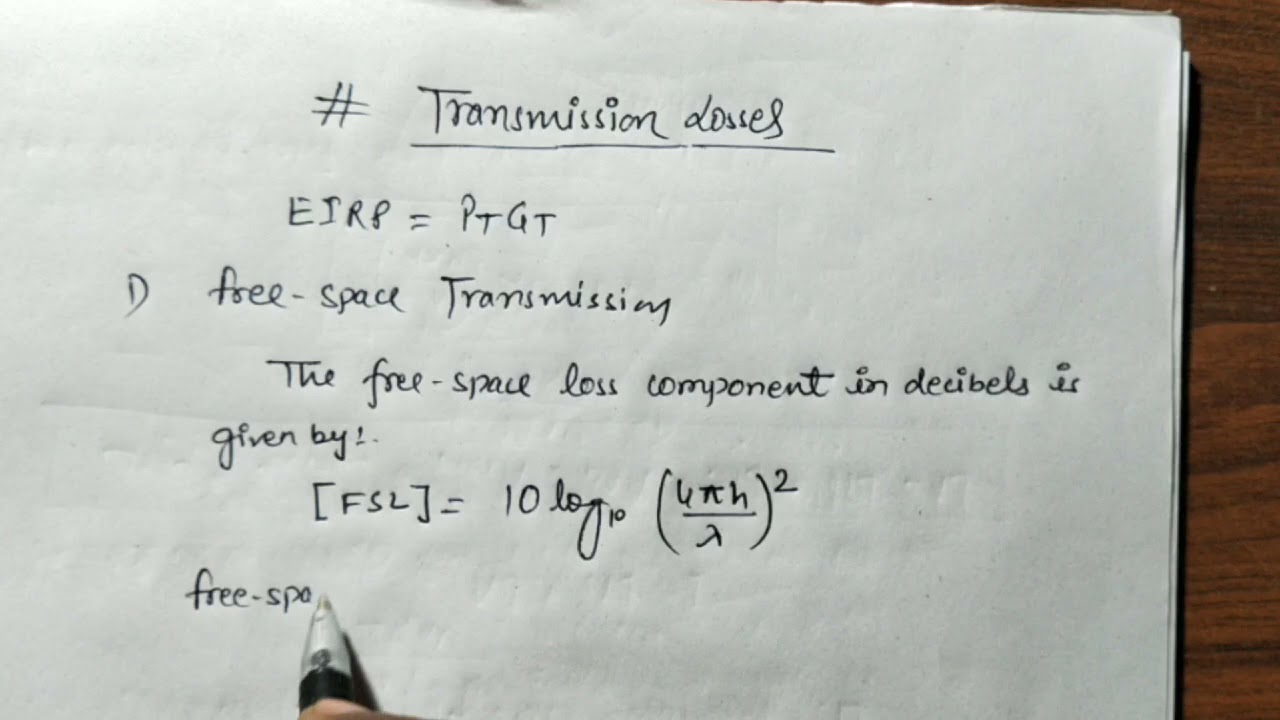 # Transmission Losses
EIRP = PTGT
1) free-space Transmission
The free-space loss component in decibels is
given by:.
[FSL] = 10 log10 (4πh/λ)2
free-spa